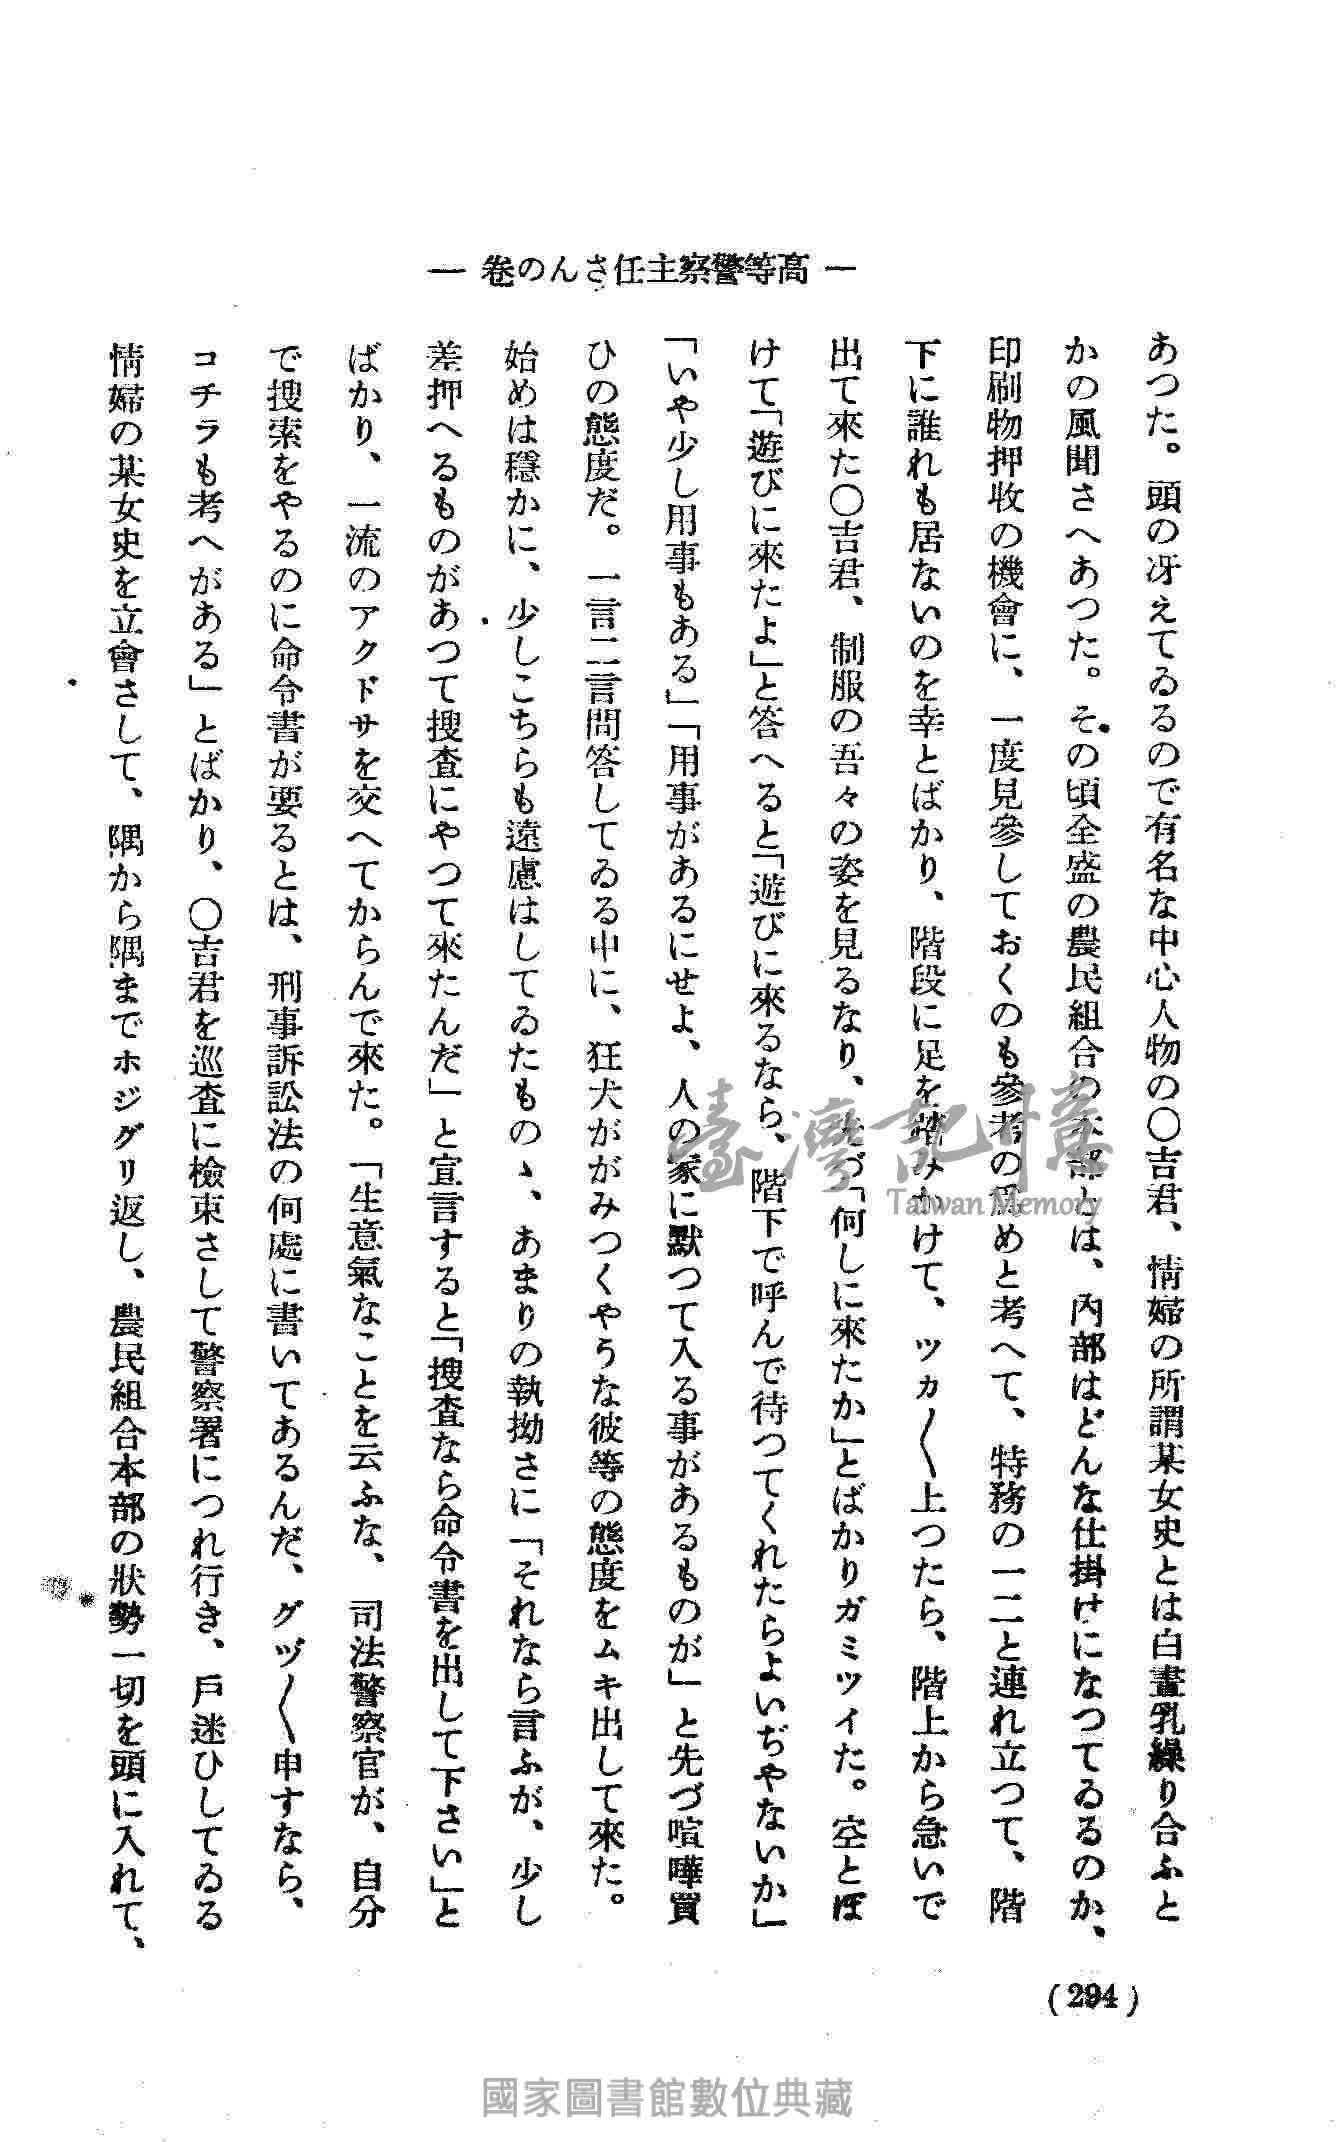 ― 高等警察主任さんの卷 ―
あつた。頭の冴えてゐるので有名な中心人物の〇吉君、情婦の所謂某女史とは白晝乳繰り合ふと
かの風聞さへあつた。その頃全盛の農民組合の本部とは、内部はどんな仕掛けになつてゐるのか、
印刷物押收の機會に、一度見參しておくのも參考の爲めと考へて、特務の一二と連れ立つて、階
下に誰れも居ないのを幸とばかり、階段に足を踏みかけて、ツカ〱上つたら、階上から急いで
出て來た〇吉君、制服の吾々の姿を見るなり、先づ「何しに來たか」とばかりガミツイた。空とぼ
けて「遊びに來たよ」と答へると「遊びに來るなら、階下で呼んで待つてくれたらよいぢやないか」
「いや少し用事もある」「用事があるにせよ、人の家に默つて入る事があるものが」と先づ喧嘩買
ひの態度だ。一言二言問答してゐる中に、狂犬ががみつくやうな彼等の態度をムキ出して來た。
始めは穩かに、少しこちらも遠慮はしてゐたものゝ、あまりの執拗さに「それなら言ふが、少し
差押へるものがあつて搜査にやつて來たんだ」と宣言すると「搜査なら命令書を出して下さい」と
ばかり、一流のアクドサを交へてからんで來た。「生意氣なことを云ふな、司法警察官が、自分
で搜索をやるのに命令書が要るとは、刑事訴訟法の何處に書いてあるんだ、グヅ〱申すなら、
コチラも考へがある」とばかり、〇吉君を巡査に檢束さして警察署につれ行き、戸迷ひしてゐる
情婦の某女史を立會さして、隅から隅までホジグリ返し、農民組合本部の狀勢一切を頭に入れて、
(294)
臺灣記憶
Taiwan Memory
國家圖書館數位典藏